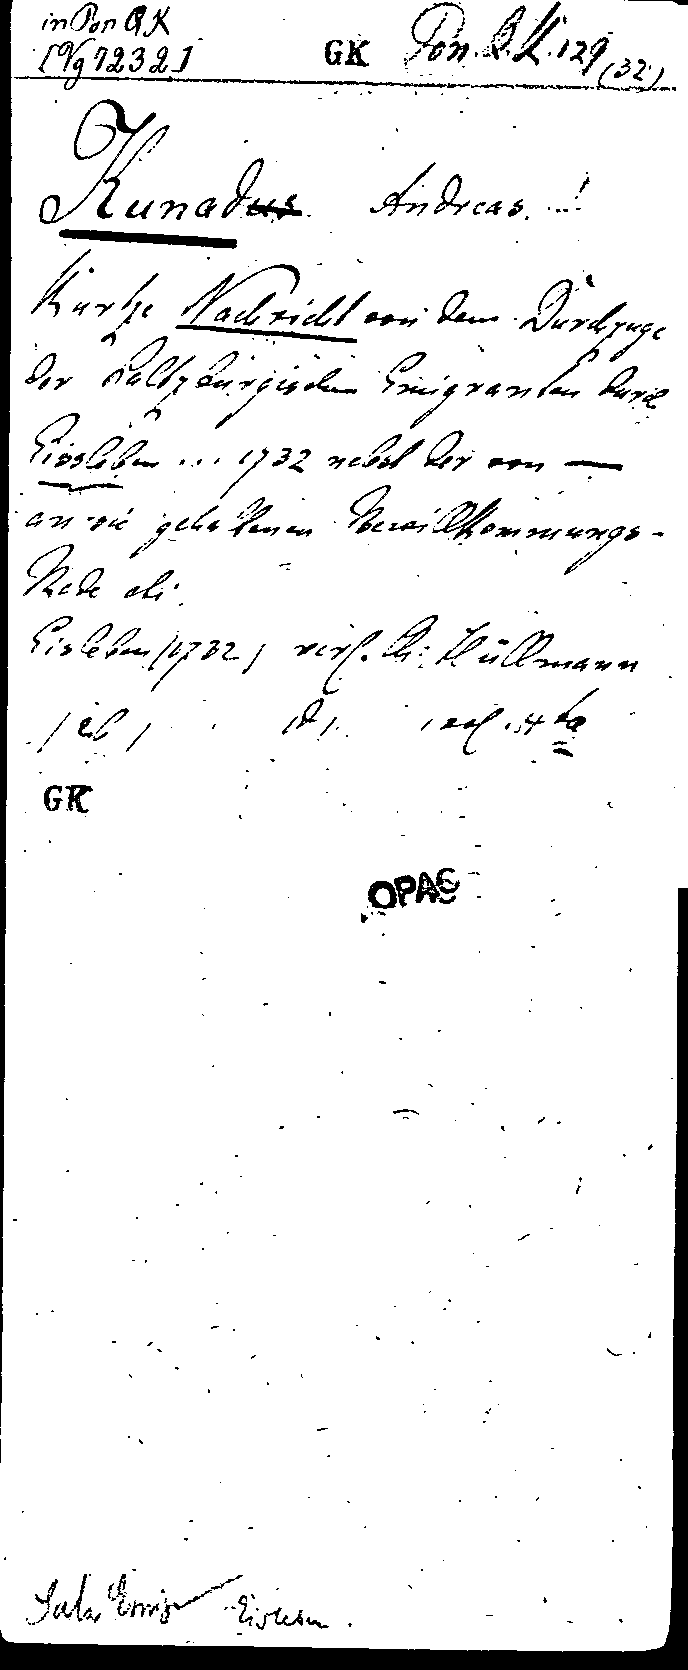 in Pon QK
[Vg 7232]
GK Pon. Q. K. 129 (32)
Kunadus Andreas.
Kurtze Nachricht von dem Durchzuge
der Saltzburgischen Emigranten durch
Eissleben ... 1732 nebst der von —
an sie gehaltenen Bewillkommungs-
Rede
Eisleben (1732) Hüllmann
4to
GK
OPAC
Salz. Emigr. Eisleben.